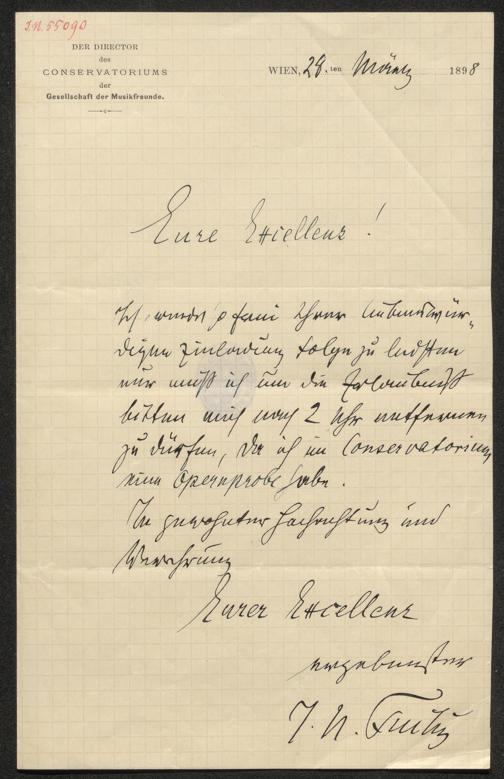 J.N. 55090
DER DIRECTOR
des
CONSERVATORIUMS
der
Gesellschaft der Musikfreunde.
WIEN, 28. ten März 1898
Eure Excellenz!
Ich werde so frei Ihrer liebenswür-
digen Einladung Folge zu leisten
nur muß ich um die Erlaubniß
bitten mich nach 2 Uhr entfernen
zu dürfen, da ich im Conservatorium
eine Opernprobe habe.
In gewohnter Hochachtung und
Verehrung
Eurer Excellenz
ergebenster
J. N. Fuchs